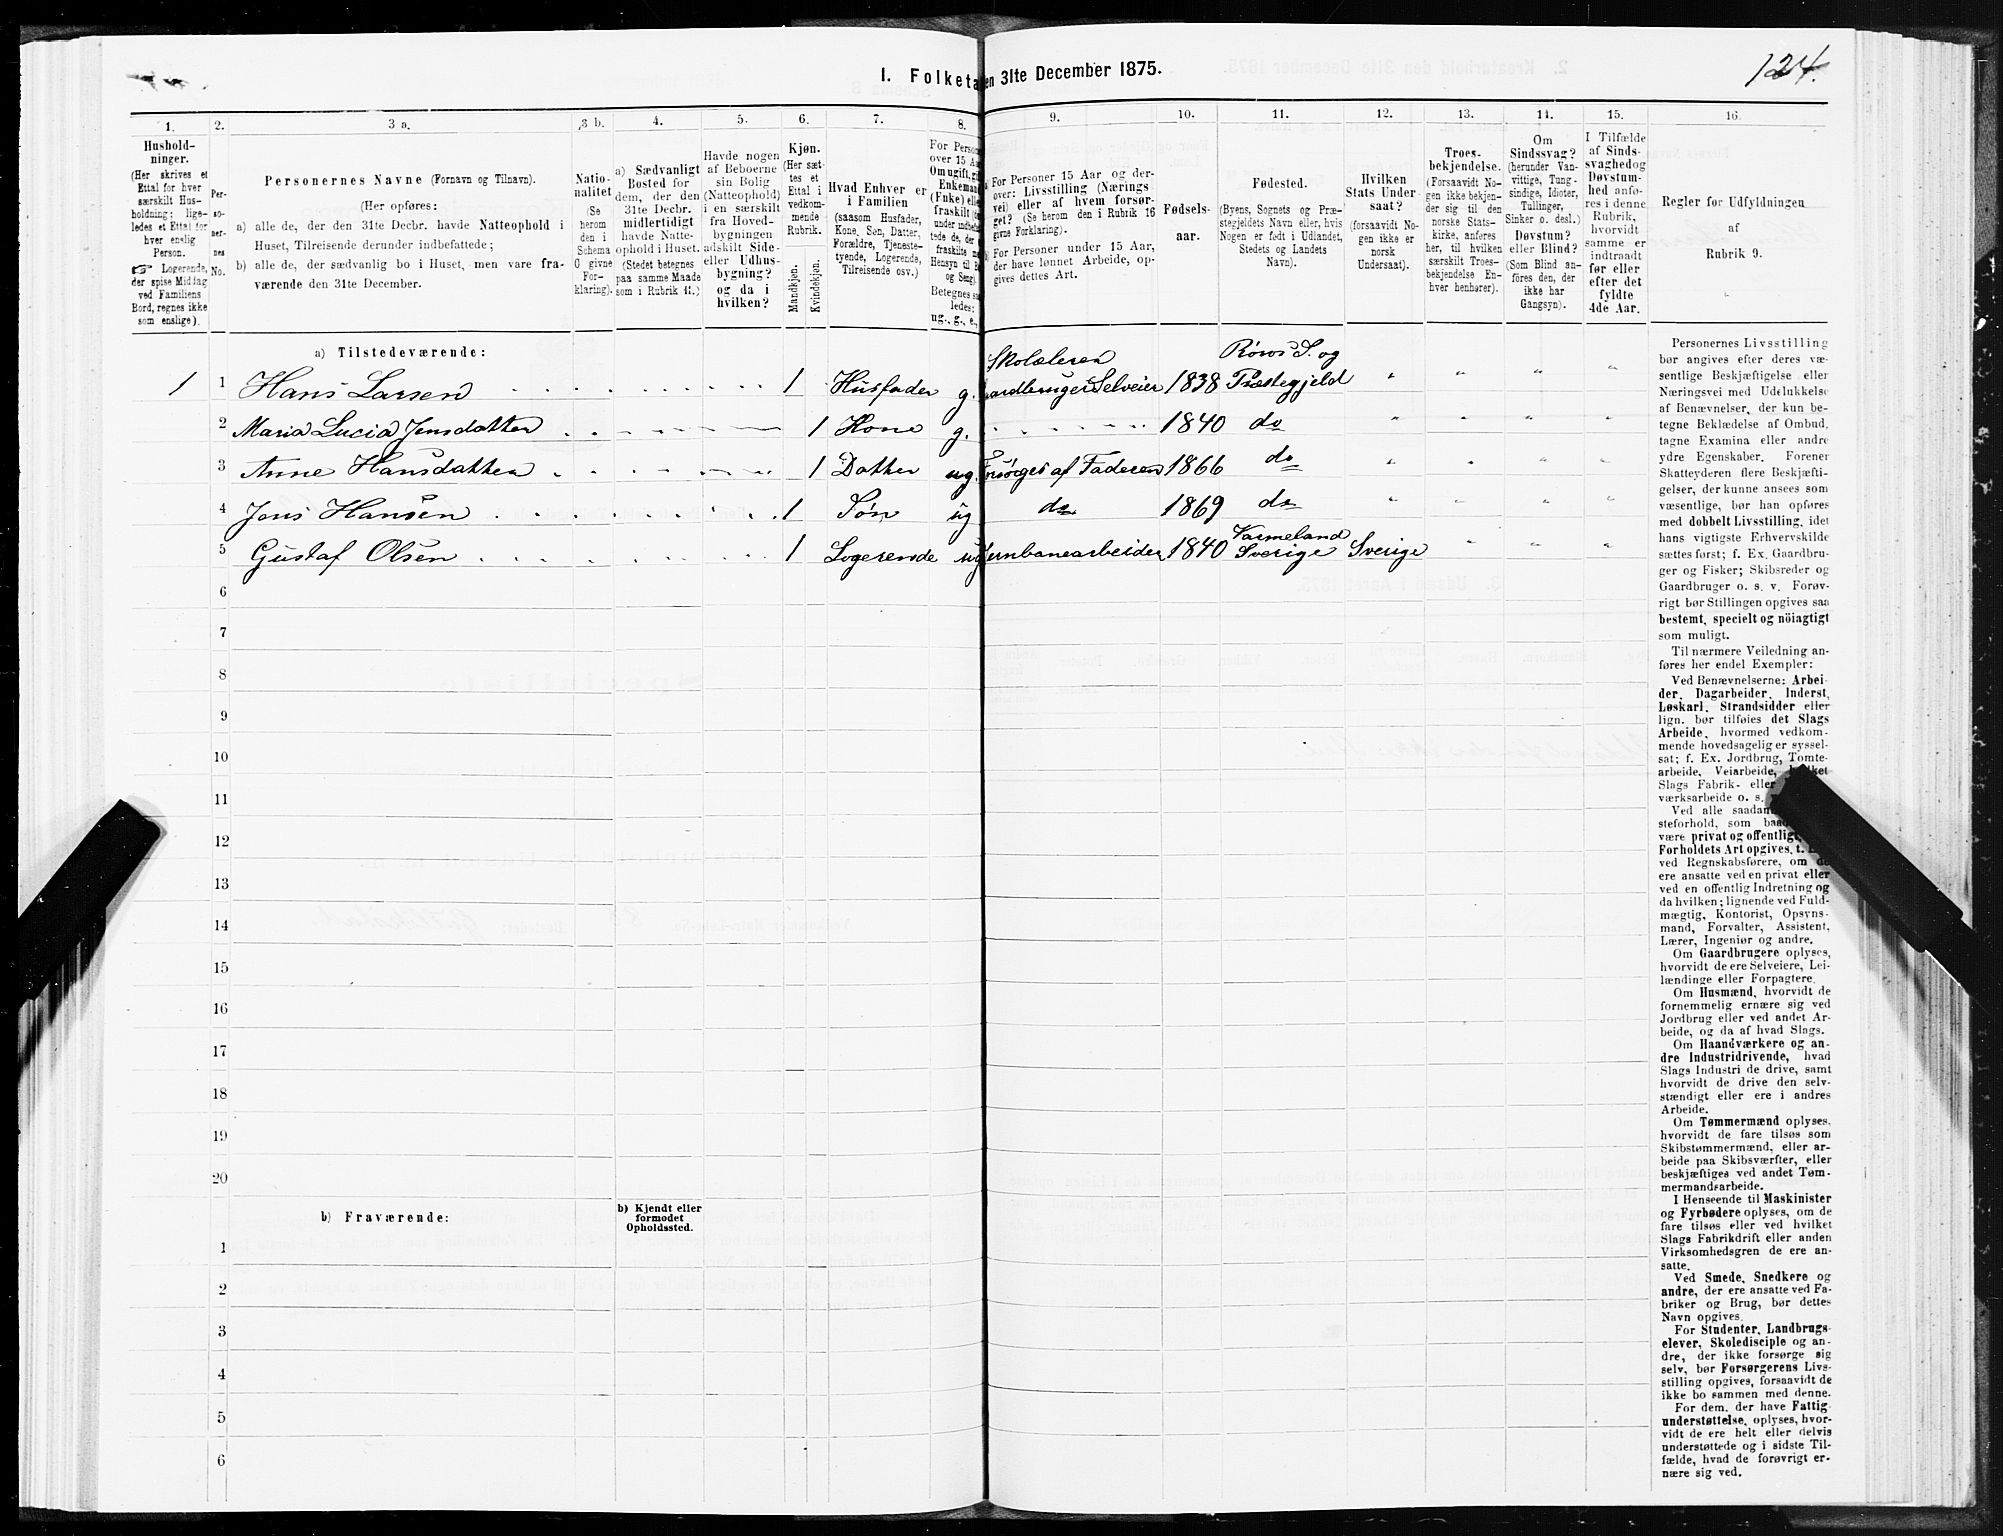 I. Folketæ en 31te December 1875.
124.
1. 2. 3 a. 3 b. 4. 5. 6. 7. 8. 9. 10. 11. 12. 13. 14. 15. 16.
Hushold-
ninger.
(Her skrives et
Ettal for hver
særskilt Hus-
holdning; lige-
ledes et Ettal for
hver enslig
Person.
☞ Logerende,
der spise Middag
ved Familiens
Bord, regnes ikke
som enslige).
Per-
so-
ner-
nes
No.
Personernes Navne (Fornavn og Tilnavn).
(Her opføres:
a) alle de, der den 31te Decbr. havde Natteophold i
Huset, Tilreisende derunder indbefattede;
b) alle de, der sædvanlig bo i Huset, men vare fra-
værende den 31te December.
Natio-
nalitet
(Se
herom
den i
Schema
C givne
For-
klaring).
a) Sædvanligt
Bosted for
dem, der den
31te Decbr.
midlertidigt
havde Natte-
ophold i Huset.
(Stedet betegnes
paa samme Maade
som i Rubrik 11.)
Havde nogen
af Beboerne
sin Bolig
(Natteophold)
i en særskilt
fra Hoved-
bygningen
adskilt Side-
eller Udhus-
bygning?
og da i
hvilken?
Kjøn.
(Her sæt-
tes et
Ettal i
vedkom-
mende
Rubrik.
Mandkjøn.
Kvindekjøn.
Hvad Enhver er
i Familien
(saasom Husfader,
Kone, Søn, Datter,
Forældre, Tjeneste-
tyende, Logerende,
Tilreisende osv.)
For Person
over 15 Aa
Om ugift, gi
Enkemand
(Enke) elle
fraskilt (d
under indbef
tede de, der
fraskilte m
Hensyn til B
og Seng).
Betegnes sa
ledes:
ug., g., e.,
a) For Personer 15 Aar og der-
over: Livsstilling (Nærings
vei) eller af hvem forsør-
get? (Se herom den i Rubrik 16
givne Forklaring).
b) For Personer under 15 Aar,
der have lønnet Arbeide, op-
gives dettes Art.
Fødsels-
aar.
Fødested.
(Byens, Sognets og Præ-
stegjeldets Navn eller, hvis
Nogen er født i Udlandet,
Stedets og Landets
Navn).
Hvilken
Stats Under
saat?
(forsaavidt No-
gen ikke er
norsk
Undersaat).
Troes-
bekjendelse.
(Forsaavidt No-
gen ikke bekjen-
der sig til den
norske Stats-
kirke, anføres
her, til hvilken
særskilt Troes-
bekjendelse En-
hver henhører).
Om
Sindssvag?
(herunder Van-
vittige, Tung-
sindige, Idioter,
Tullinger,
Sinker o. desl.)
Døvstum?
eller Blind?
(Som Blind an-
føres den, der
ikke har
Gangsyn).
I Tilfælde
af Sinds-
svaghed og
Døvstum-
hed anfø-
res i denne
Rubrik,
hvorvidt
samme er
indtraadt
før eller
efter det
fyldte
4de Aar.
Regler for Udfyldningen
af
Rubrik 9.
a) Tilstedeværende:
Skolelerer Røros S. og
1 1 Hans Larsen 1 Husfader g. aardbruger Selveier 1838 Præstegjeld " " " "
2 Maria Lucia Jensdatter 1 Kone g. 1840 do " " " "
3 Anne Hansdatter 1 Datter ug. Forsørges af Faderen 1866 do " " " "
4 Jens Hansen 1 Søn ug do 1869 do " " " "
Varmeland
5 Gustaf Olsen 1 Logerende ug Jernbanearbeider 1840 Sverige Sverige " " "
6
7
8
9
10
11
12
13
14
15
16
17
18
19
20
b) Fraværende:
b) Kjendt eller
formodet
Opholdssted.
1
2
3
4
5
6
Personernes Livsstilling
bør angives efter deres væ-
sentlige Beskjæftigelse eller
Næringsvei med Udelukkelse
af Benævnelser, der kun be-
tegne Beklædelse af Ombud,
tagne Examina eller andre
ydre Egenskaber. Forener
Skatteyderen flere Beskjæfti-
gelser, der kunne ansees som
væsentlige, bør han opføres
med dobbelt Livsstilling, idet
hans vigtigste Erhvervskilde
sættes først; f. Ex. Gaardbru-
ger og Fisker; Skibsreder og
Gaardbruger o. s. v. Forøv-
rigt bør Stillingen opgives saa
bestemt, specielt og nöiagtigt
som muligt.
Til nærmere Veiledning an-
føres her endel Exempler:
Ved Benævnelserne: Arbei-
der, Dagarbeider, Inderst,
Løskarl, Strandsidder eller
lign. bør tilføies det Slags
Arbeide, hvormed vedkom-
mende hovedsagelig er syssel-
sat; f. Ex. Jordbrug, Tomte-
arbeide, Veiarbeide,
Slags Fabrik- eller
værksarbeide o. s.
Ved alle saadan
steforhold, som baad
være privat og offentlig
Forholdets Art opgives, t.
ved Regnskabsførere, om de
ere ansatte ved en privat eller
ved en offentlig Indretning og
da hvilken; lignende ved Fuld-
mægtig, Kontorist, Opsyns-
mand, Forvalter, Assistent,
Lærer, Ingeniør og andre.
Om Gaardbrugere oplyses,
hvorvidt de ere Selveiere, Lei-
lændinge eller Forpagtere.
Om Husmænd, hvorvidt de
fornemmelig ernære sig ved
Jordbrug eller ved andet Ar-
beide, og da af hvad Slags.
Om Haandværkere og an-
dre Industridrivende, hvad
Slags Industri de drive, samt
hvorvidt de drive den selv-
stændigt eller ere i andres
Arbeide.
Om Tømmermænd oplyses,
hvorvidt de fare tilsøs som
Skibstømmermænd, eller ar-
beide paa Skibsværfter, eller
beskjæftiges ved andet Tøm-
mermandsarbeide.
I Henseende til Maskinister
og Fyrbødere oplyses, om de
fare tilsøs eller ved hvilket
Slags Fabrikdrift eller anden
Virksomhedsgren de ere an-
satte.
Ved Smede, Snedkere og
andre, der ere ansatte ved Fa-
briker og Brug, bør dettes
Navn opgives.
For Studenter, Landbrugs-
elever, Skoledisciple og an-
dre, der ikke forsørge sig
selv, bør Forsørgerens Livs-
stilling opgives, forsaavidt de
ikke bo sammen med denne.
For dem, der have Fattig-
understøttelse, oplyses, hvor-
vidt de ere helt eller delvis
understøttede og i sidste Til-
fælde, hvad de forøvrigt er-
nære sig ved.